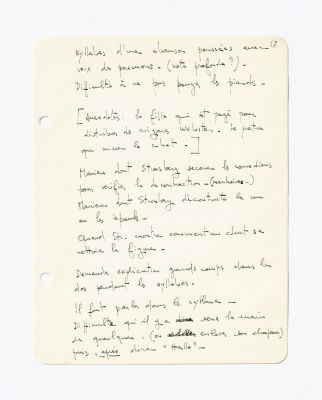 2
syllabes d'une chanson poussées avec
voix de poumons. (note profonde ?).
Difficulté à ne pas bouger les pieds.
[Anecdotes: la fille qui est payé pour
distribuer des cigares Webster. Le peintre
qui le chat. .]
Manière dont Strasberg secoue les comédiens
pour vérifier la décontraction - (manchoirs -)
Manière dont Strasberg décontracte le cou
ou les épaules -
Quand Str. montre comment un chat se
nettoie la figure -
Demande explication grands coups dans le
dos pendant les syllabes.
Il faut parler dans le rythme -
Difficulté qu'il y a sous la main
de quelqu'un, (ou enlever son chapeau)
puis, après dire "Hello" -